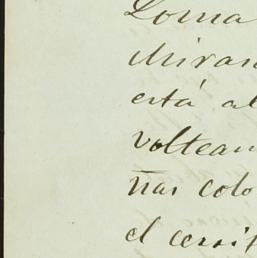 Loma
Miran
está al
voltean
ñas colo
el cerrit